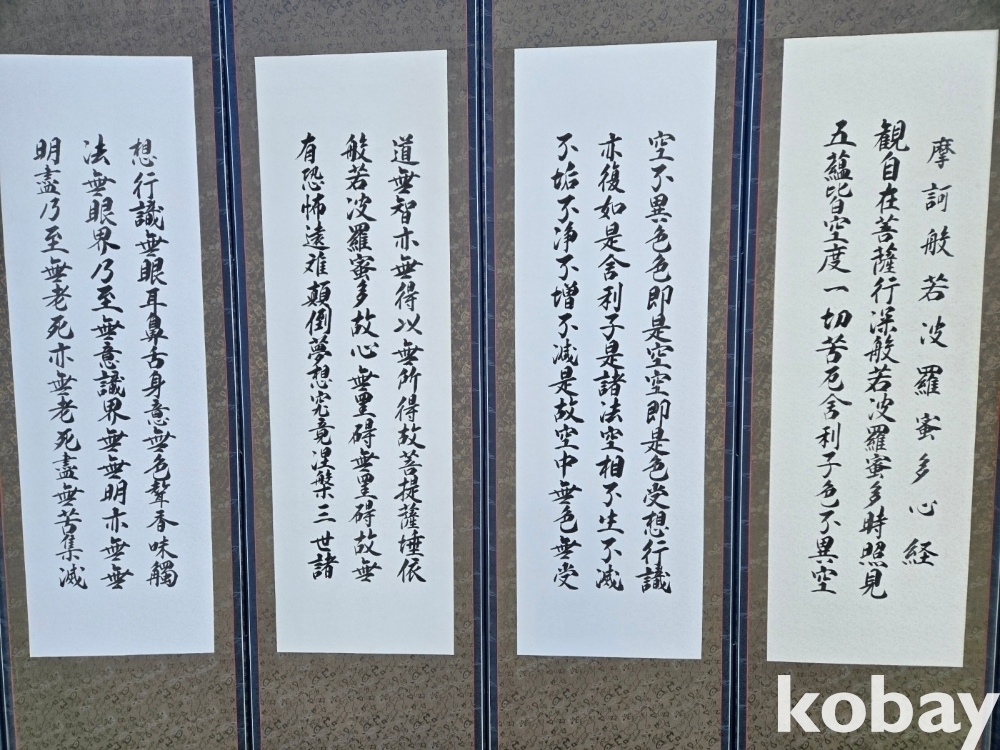 摩訶般若波羅蜜多心経
観自在菩薩行深般若波羅蜜多時照見
五蘊皆空度一切苦厄舍利子色不異空
空不異色色即是空空即是色受想行識
亦復如是舍利子是諸法空相不生不滅
不垢不浄不增不滅是故空中無色無受
道無智亦無得以無所得故菩提薩埵依
般若波羅蜜多故心無罣碍無罣碍故無
有恐怖遠难顛倒夢想究竟涅槃三世諸
想行識無眼耳鼻舌身意無色聲香味觸
法無眼界乃至無意識界無無明亦無無
明盡乃至無老死亦無老死盡無苦集滅
kobay